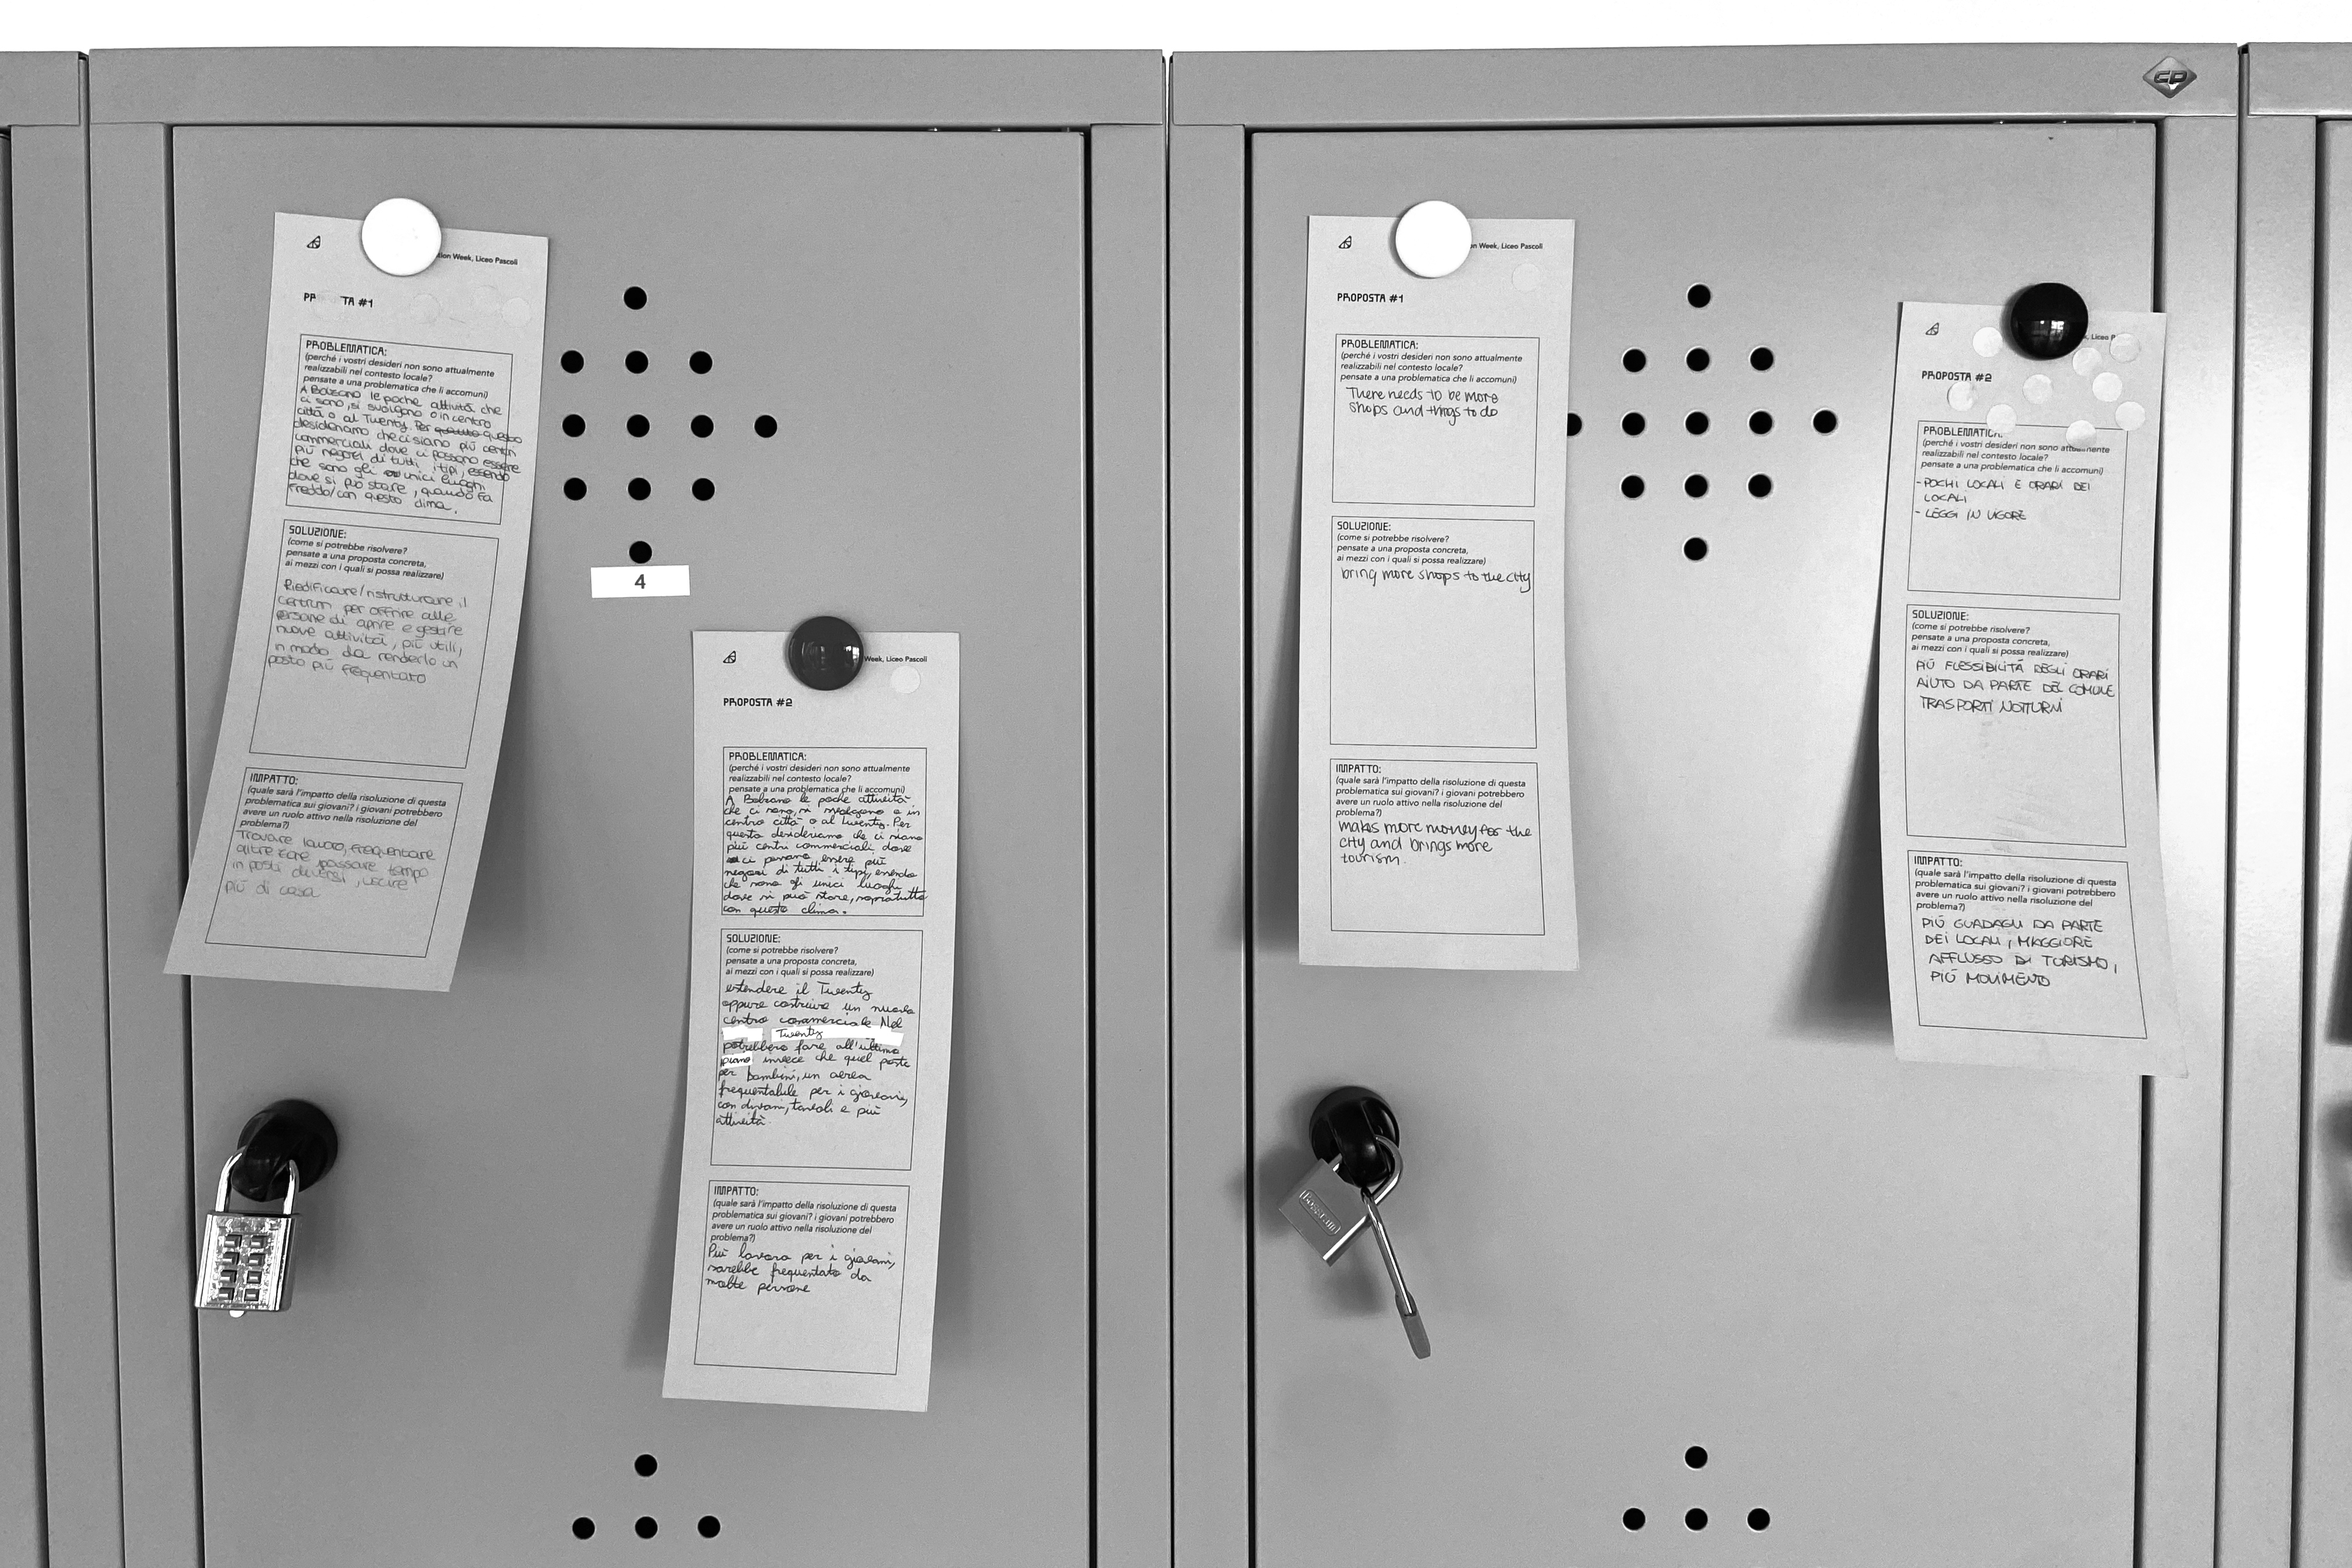 CP
tion Week, Liceo Pascoli
PR TA #1
PROBLEMATICA:
(perché i vostri desideri non sono attualmente
realizzabili nel contesto locale?
pensate a una problematica che li accomuni)
A Bolzano le poche attività che
ci sono, si svolgono o in centro
città o al Twenty. Per questo
desideriamo che ci siano più centri
commerciali dove ci possono essere
più negozi di tutti i tipi, essendo
che sono gli unici luoghi
dove si può stare, quando fa
freddo/con questo clima.
SOLUZIONE:
(come si potrebbe risolvere?
pensate a una proposta concreta,
ai mezzi con i quali si possa realizzare)
Riedificare/ristrutturare il
centrum per offrire alle
persone di aprire e gestire
nuove attività, più utili,
in modo da renderlo un
posto più frequentato
IMPATTO:
(quale sarà l'impatto della risoluzione di questa
problematica sui giovani? i giovani potrebbero
avere un ruolo attivo nella risoluzione del
problema?)
Trovare lavoro, frequentare
altre zone, passare tempo
in posti diversi, uscire
più di casa
4
Week, Liceo Pascoli
PROPOSTA #2
PROBLEMATICA:
(perché i vostri desideri non sono attualmente
realizzabili nel contesto locale?
pensate a una problematica che li accomuni)
A Bolzano le poche attività
che ci sono, si svolgono o in
centro città o al Twenty. Per
questo desideriamo che ci siano
più centri commerciali dove
ci possano essere più
negozi di tutti i tipi, essendo
che sono gli unici luoghi
dove si può stare, sopratutto
con questo clima.
SOLUZIONE:
(come si potrebbe risolvere?
pensate a una proposta concreta,
ai mezzi con i quali si possa realizzare)
estendere il Twenty
oppure costruire un nuovo
centro commerciale. Nel
Twenty
potrebbero fare all'ultimo
piano invece che quel posto
per bambini, un aerea
frequentabile per i giovani,
con divani, tavoli e più
attività.
IMPATTO:
(quale sarà l'impatto della risoluzione di questa
problematica sui giovani? i giovani potrebbero
avere un ruolo attivo nella risoluzione del
problema?)
Più lavoro per i giovani,
sarebbe frequentato da
molte persone
on Week, Liceo Pascoli
PROPOSTA #1
PROBLEMATICA:
(perché i vostri desideri non sono attualmente
realizzabili nel contesto locale?
pensate a una problematica che li accomuni)
There needs to be more
shops and things to do
SOLUZIONE:
(come si potrebbe risolvere?
pensate a una proposta concreta,
ai mezzi con i quali si possa realizzare)
bring more shops to the city
IMPATTO:
(quale sarà l'impatto della risoluzione di questa
problematica sui giovani? i giovani potrebbero
avere un ruolo attivo nella risoluzione del
problema?)
makes more money for the
city and brings more
tourism.
k, Liceo P
PROPOSTA #2
PROBLEMATICA:
(perché i vostri desideri non sono attualmente
realizzabili nel contesto locale?
pensate a una problematica che li accomuni)
- POCHI LOCALI E ORARI DEI
LOCALI
- LEGGI IN VIGORE
SOLUZIONE:
(come si potrebbe risolvere?
pensate a una proposta concreta,
ai mezzi con i quali si possa realizzare)
PIÙ FLESSIBILITÀ DEGLI ORARI
AIUTO DA PARTE DEL COMUNE
TRASPORTI NOTTURNI
IMPATTO:
(quale sarà l'impatto della risoluzione di questa
problematica sui giovani? i giovani potrebbero
avere un ruolo attivo nella risoluzione del
problema?)
PIÙ GUADAGNI DA PARTE
DEI LOCALI, MAGGIORE
AFFLUSSO DI TURISMO,
PIÙ MOVIMENTO